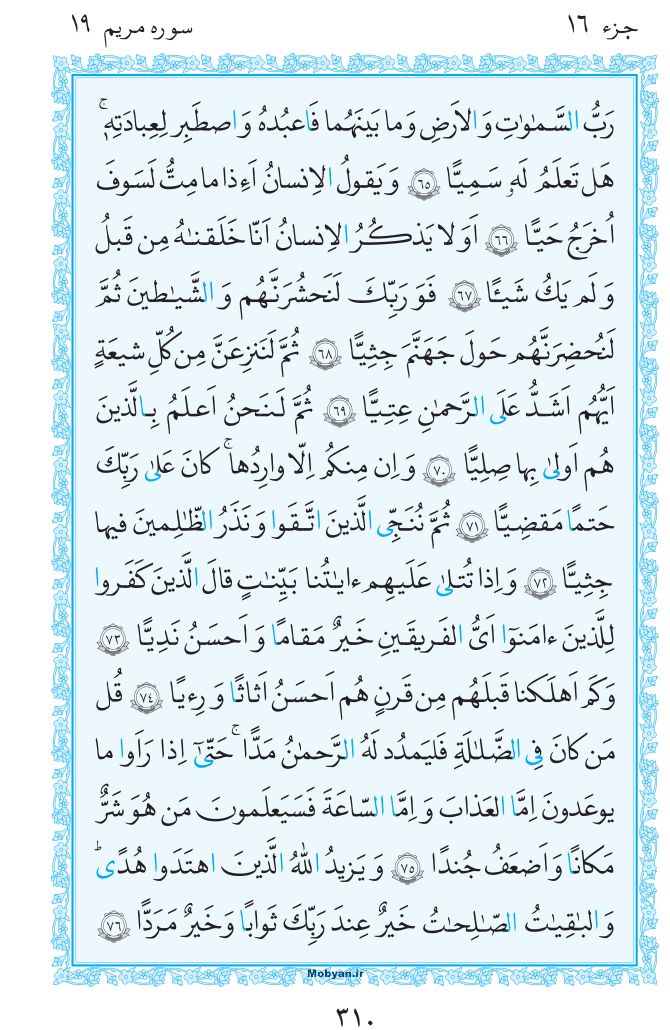 جزء ۱۶
سوره مریم ۱۹
رَبُّ السَّمٰوٰتِ وَ الاَرضِ وَ ما بَینَهُما فَاعبُدهُ وَ اصطَبِر لِعِبادَتِهٖۚ
هَل تَعلَمُ لَهٗ سَمِیًّا ﴿۶۵﴾ وَ یَقولُ الاِنسانُ اَءِذا ما مِتُّ لَسَوفَ
اُخرَجُ حَیًّا ﴿۶۶﴾ اَوَ لا یَذکُرُ الاِنسانُ اَنّا خَلَقنٰهُ مِن قَبلُ
وَ لَم یَکُ شَیئًا ﴿۶۷﴾ فَوَ رَبِّکَ لَنَحشُرَنَّهُم وَ الشَّیٰطینَ ثُمَّ
لَنُحضِرَنَّهُم حَولَ جَهَنَّمَ جِثِیًّا ﴿۶۸﴾ ثُمَّ لَنَنزِعَنَّ مِن کُلِّ شیعَةٍ
اَیُّهُم اَشَدُّ عَلَی الرَّحمٰنِ عِتِیًّا ﴿۶۹﴾ ثُمَّ لَنَحنُ اَعلَمُ بِالَّذینَ
هُم اَولیٰ بِها صِلِیًّا ﴿۷۰﴾ وَ اِن مِنکُم اِلّا وارِدُهاۚ کانَ عَلیٰ رَبِّکَ
حَتمًا مَقضِیًّا ﴿۷۱﴾ ثُمَّ نُنَجِّی الَّذینَ اتَّقَوا وَ نَذَرُ الظّٰلِمینَ فیها
جِثِیًّا ﴿۷۲﴾ وَ اِذا تُتلیٰ عَلَیهِم ءایٰتُنا بَیِّنٰتٍ قالَ الَّذینَ کَفَروا
لِلَّذینَ ءامَنوٓا اَیُّ الفَریقَینِ خَیرٌ مَقامًا وَ اَحسَنُ نَدِیًّا ﴿۷۳﴾
وَ کَم اَهلَکنا قَبلَهُم مِن قَرنٍ هُم اَحسَنُ اَثاثًا وَ رِءیًا ﴿۷۴﴾ قُل
مَن کانَ فِی الضَّلٰلَةِ فَلیَمدُد لَهُ الرَّحمٰنُ مَدًّاۚ حَتّیٰٓ اِذا رَاَوا ما
یوعَدونَ اِمَّا العَذابَ وَ اِمَّا السّاعَةَ فَسَیَعلَمونَ مَن هُوَ شَرٌّ
مَکانًا وَ اَضعَفُ جُندًا ﴿۷۵﴾ وَ یَزیدُ اللّٰهُ الَّذینَ اهتَدَوا هُدًیؕ
وَ البٰقِیٰتُ الصّٰلِحٰتُ خَیرٌ عِندَ رَبِّکَ ثَوابًا وَ خَیرٌ مَرَدًّا ﴿۷۶﴾
Mobyan.ir
۳۱۰